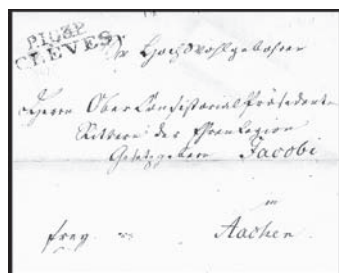 P.103.P
CLEVES
Sr Hochwohlgebohren
Herrn Ober Consistorial Präsidenten
Rittern der Ehren Legion
Jacobi
in
frey Aachen